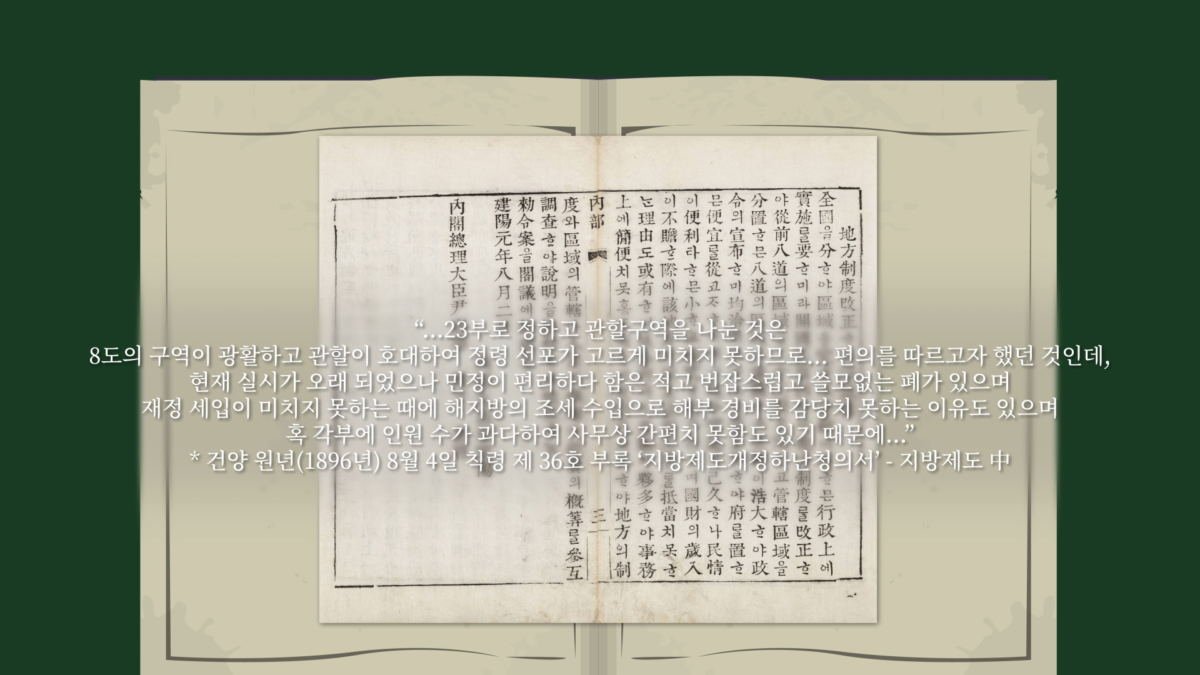 “...23부로 정하고 관할구역을 나눈 것은
8도의 구역이 광활하고 관할이 호대하여 정령 선포가 고르게 미치지 못하므로... 편의를 따르고자 했던 것인데,
현재 실시가 오래 되었으나 민정이 편리하다 함은 적고 번잡스럽고 쓸모없는 폐가 있으며
재정 세입이 미치지 못하는 때에 해지방의 조세 수입으로 해부 경비를 감당치 못하는 이유도 있으며
혹 각부에 인원 수가 과다하여 사무상 간편치 못함도 있기 때문에...”
* 건양 원년(1896년) 8월 4일 칙령 제 36호 부록 ‘지방제도개정하난청의서’ - 지방제도 中
地方制度改正
全國을分하야區域 은行政上에
實施를要하미라 制度를改正하
야從前八道의區域 고管轄區域을
分置하믄八道의 이浩大하야政
令의宣布하미均 하야府를置하
믄便宜를從코 己久하나民情
이便利라하믄小 며國財의歲入
이不贍한際에該 를抵當치못하
는理由도或有하 夥多하야事務
上에簡便치못 하야地方의制
內部 三
度와區域의管轄 의槪筭를參互
調查하야說明을
勅令案을閣議에
建陽元年八月二
內閣總理大臣尹